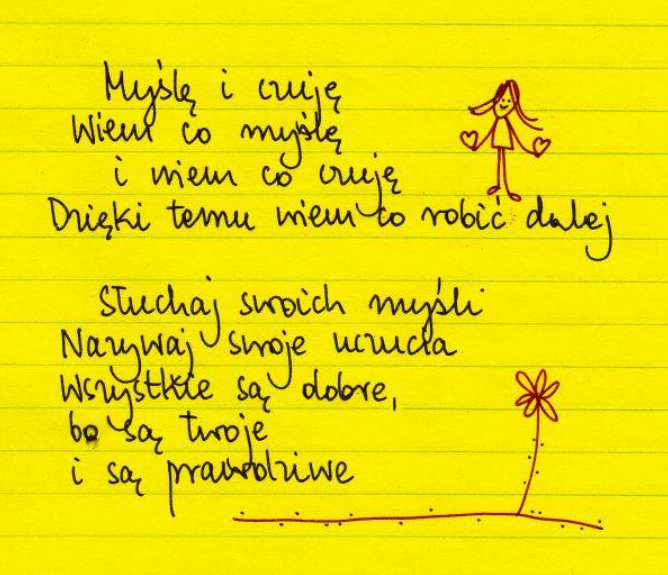 Myślę i czuję
Wiem co myślę
i wiem co czuję
Dzięki temu wiem co robić dalej
Słuchaj swoich myśli
Nazywaj swoje uczucia
Wszystkie są dobre,
bo są twoje
i są prawdziwe